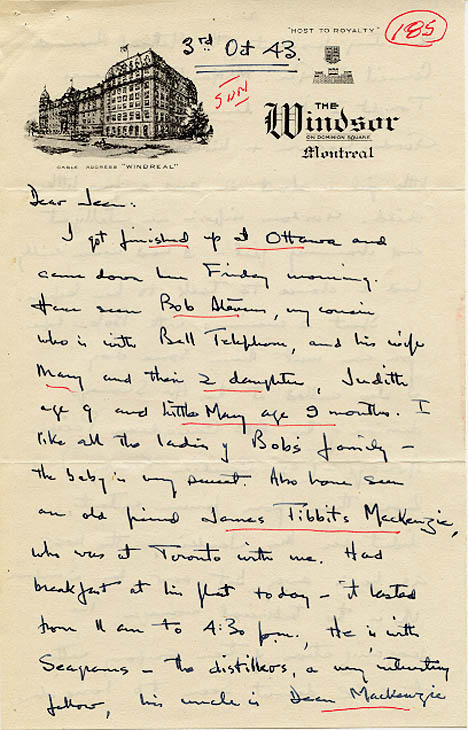 "HOST TO ROYALTY"
185
3rd Oct 43.
SUN
THE
Windsor
ON DOMINION SQUARE
Montreal
CABLE ADDRESS "WINDREAL"
Dear Jean:
I got finished up at Ottawa and
came down here Friday morning.
Have seen Bob Stevens, my cousin
who is with Bell Telephone, and his wife
Mary and their 2 daughters, Judith
age 9 and little Mary age 9 months. I
like all the ladies of Bob's family -
the baby is very sweet. Also have seen
an old friend James Tibbits MacKenzie,
who was at Toronto with me. Had
breakfast at his flat today - it lasted
from 11 am to 4:30 p.m., He is with
Seagrams - the distillers, a very interesting
fellow, his uncle is Dean Mackenzie